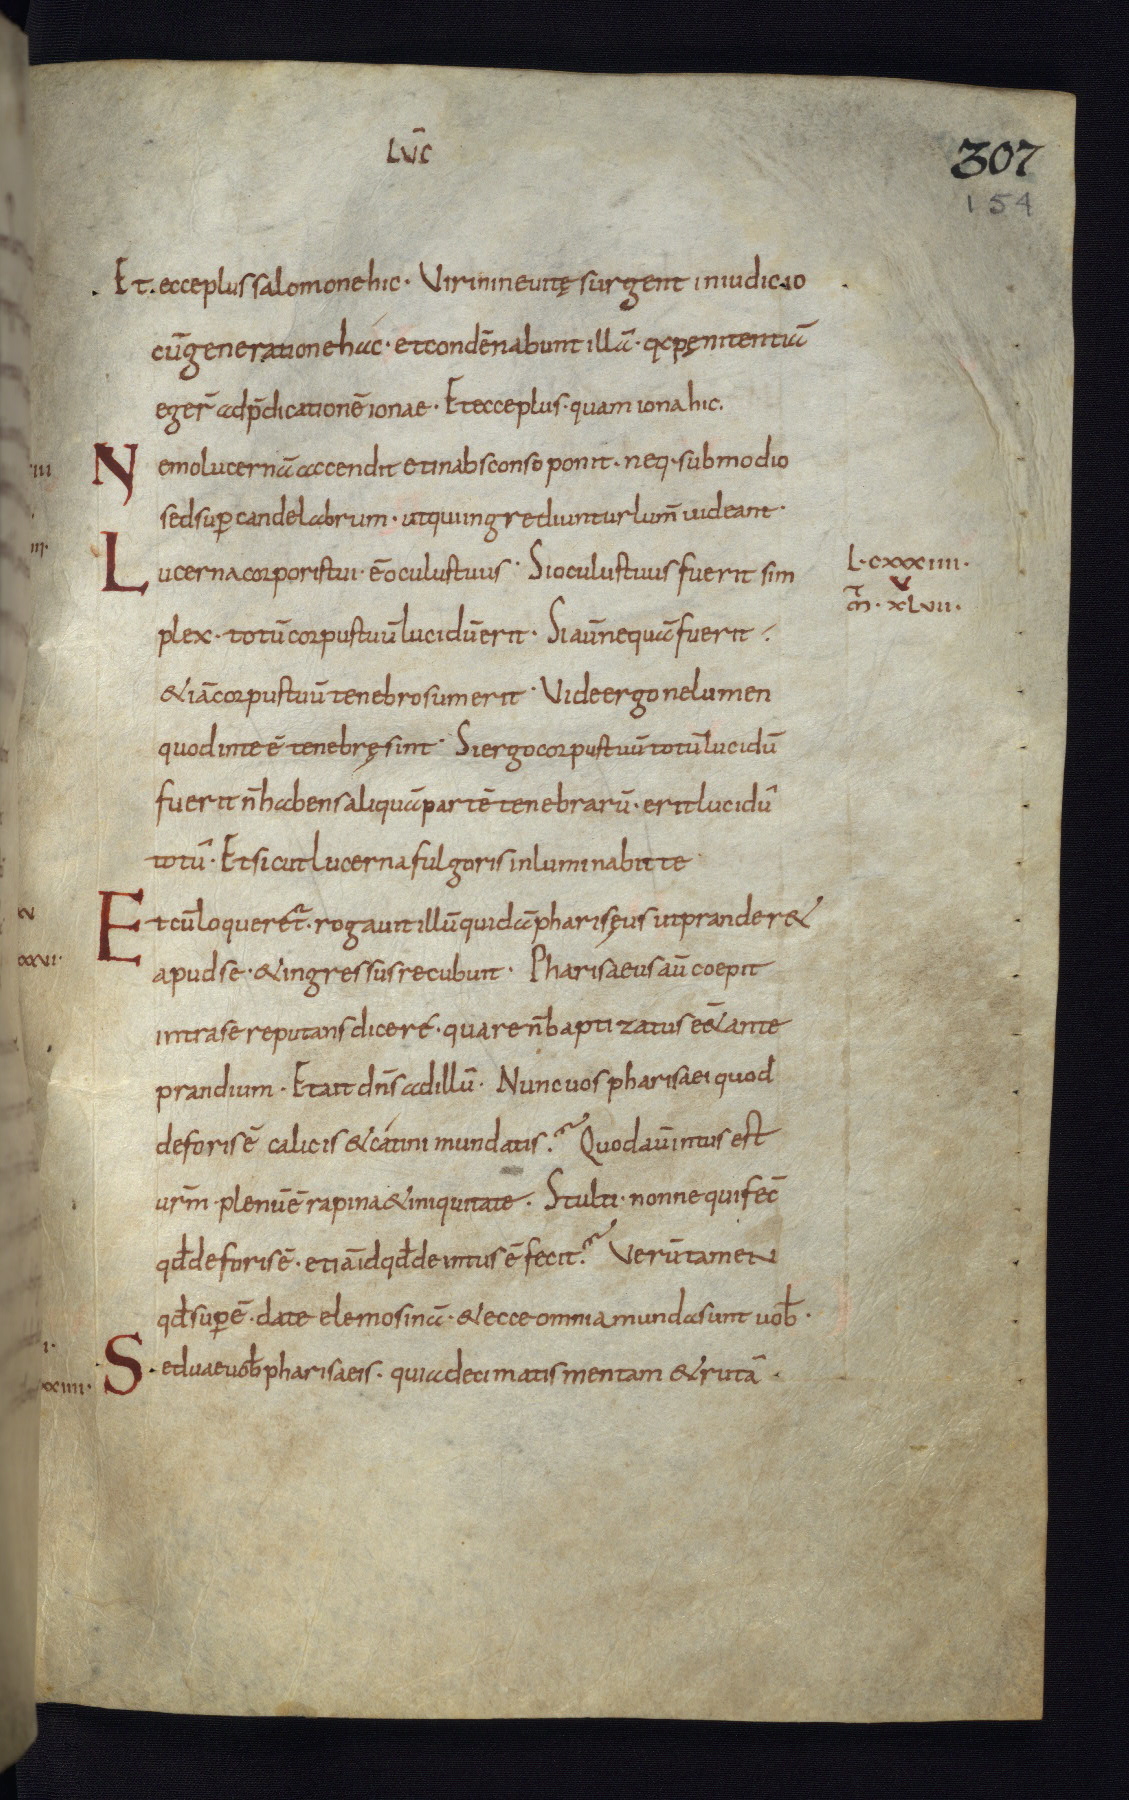 LUC̄
307
154
Et. ecce plus salomone hic. Viri nineuitę surgent in iudicio
cū generatione hác. et condēnabunt illā. qa pęnitentiā
egeŕ ad p̄dicationē ionae. Et ecce plus. quam iona hic.
iii
Nemo lucernā accendit et in absconso ponit. neq. sub modio
sed sup candelabrum. ut qui ingrediuntur lum̄ uideant.
iii.
Lucerna corporis tui. ē oculus tuus. Si oculus tuus fuerit sim
L. cxxxiiii.
m̄. xLvii.
v
plex. totū corpus tuū lucidū erit. Si aū nequā fuerit.
& iā corpus tuū tenebrosum erit. Vide ergo ne lumen
quod in te ē tenebrę sint. Si ergo corpus tuū totū lucidū
fuerit n̄ habens aliquā partē tenebrarū. erit lucidū
totū. Et sicut lucerna fulgoris inluminabit te.
xxvi.
Et cū loqueret. rogauit illū quidā pharisęus ut prander&
apud se. & ingressus recubuit. Pharisaeus aū coepit
intra se reputans diceré. quare n̄ baptizatus eē& ante
prandium. Et ait dn̄s ad illū. Nunc uos pharisaei quod
deforis ē calicis & catini mundatis. Quod aū intus est
urm̄. plenū ē rapina & iniquitate. Stulti. nonne qui fec̄
qđ deforis ē. etiā id qđ deintus ē fecit. Verūtamen
qđ sup ē. date elemosinā. & ecce omnia munda sunt uob̄.
i.
xiiii.
Sed uae uob̄ pharisaeis. quia decimatis mentam & rutā.